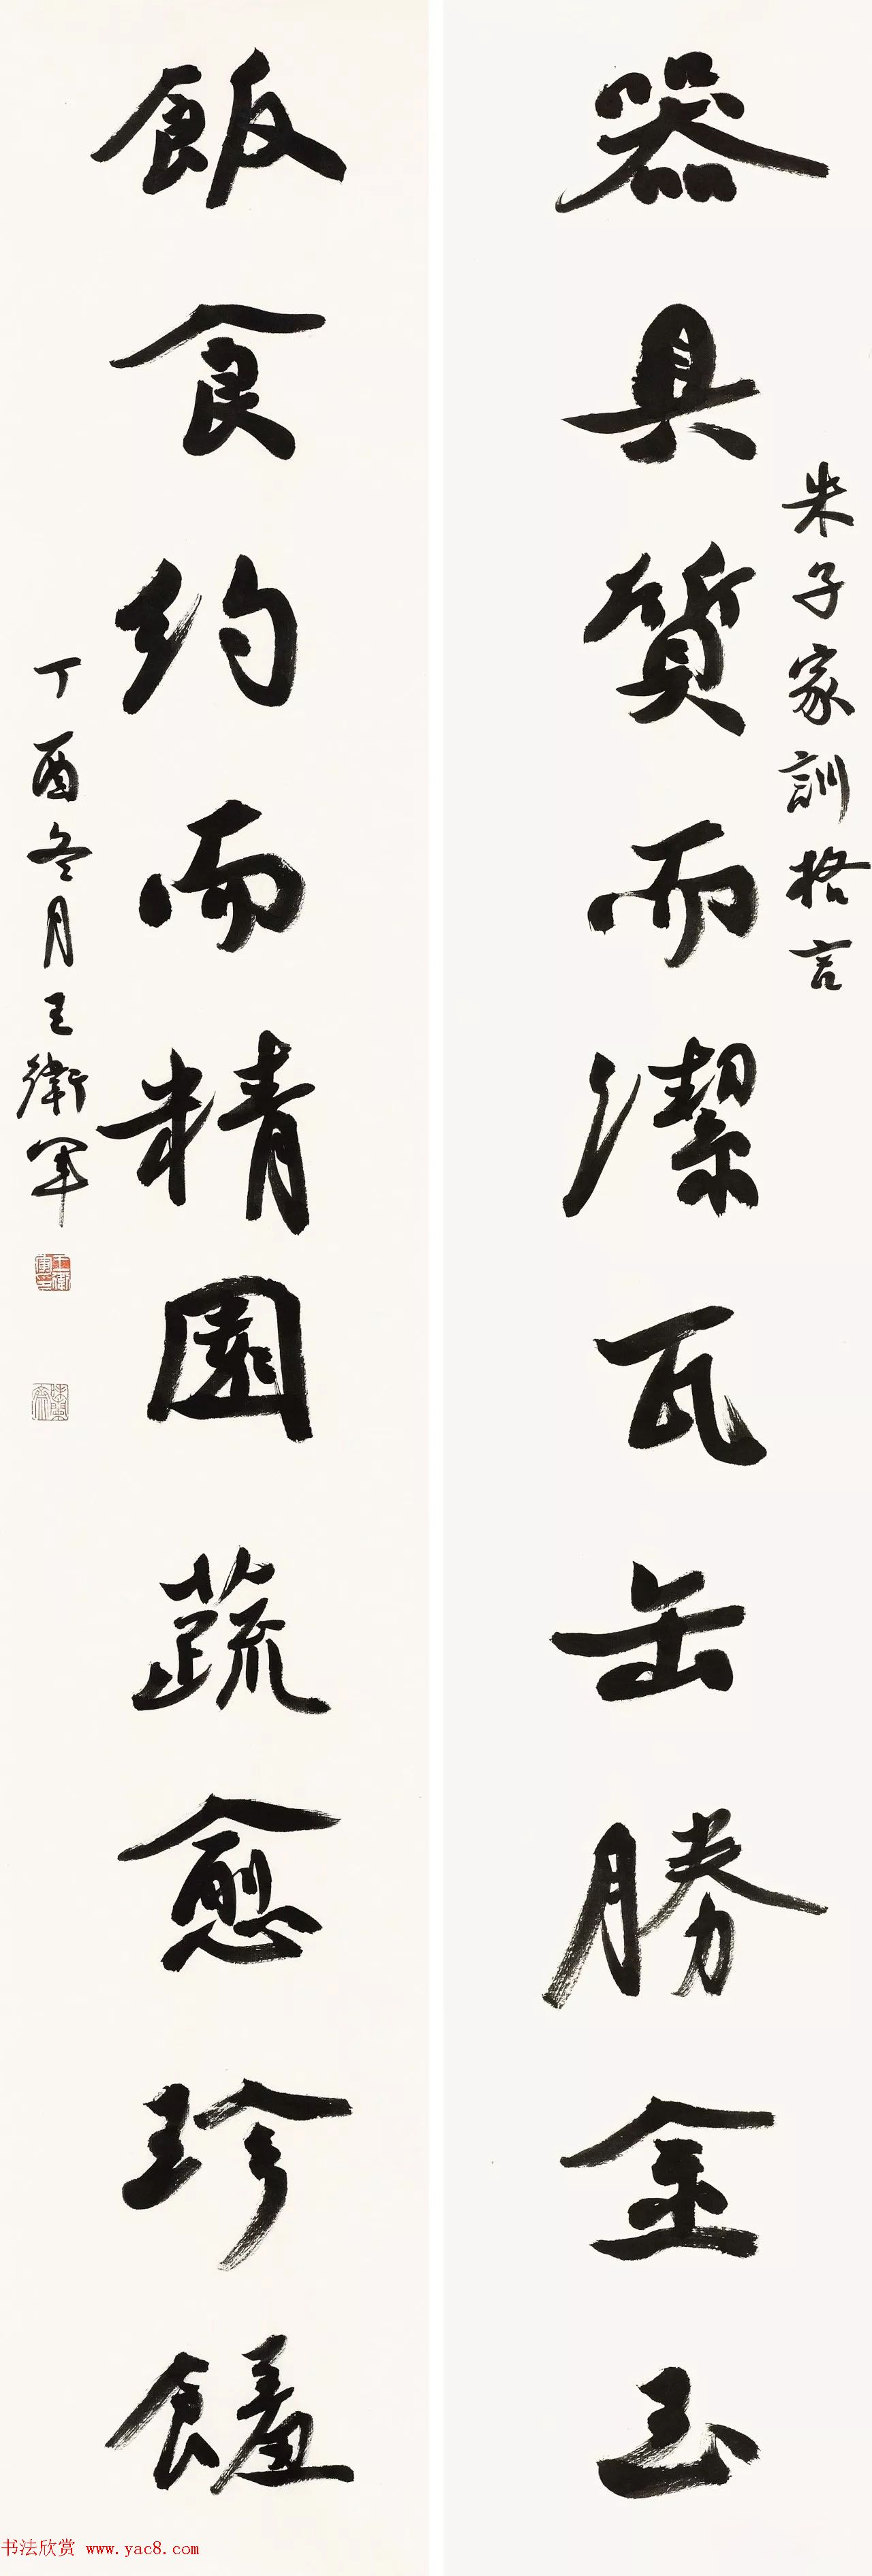 朱子家訓格言
器具質而潔瓦缶勝金玉
飯食約而精園蔬愈珍饈
丁酉冬月王衛軍
王衛軍印
书法欣赏 www.yac8.com